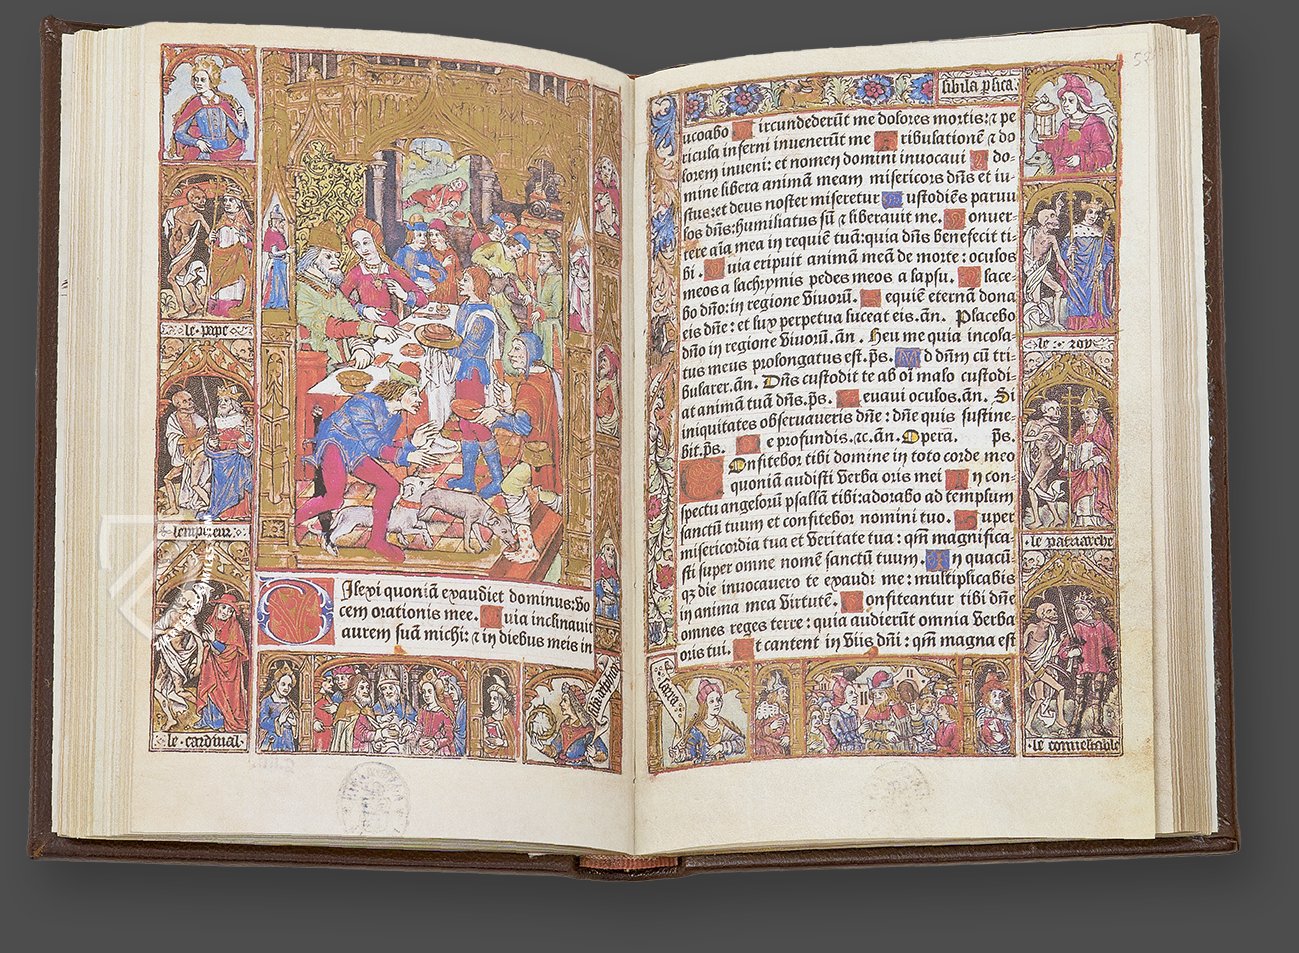 ·le·pape·
lempereur·
·le·cardinal·
Ilexi quoniā exaudiet dominus: vo
cem orationis mee. uia inclinavit
aurem suā michi: ⁊ in diebus meis in
libica
sibila plica:
ucabo ircundederūt me dolores mortis: ⁊ pe
ricula inferni invenerūt me ribulationē ⁊ do
lorem inveni: et nomen domini invocavi do-
mine libera animā meam misericors dn̄s et iu-
stus: et deus noster miseretur ustodiēs parvu
los dn̄s: humiliatus sū ⁊ liberavit me. onver-
tere aīa mea in requiē tuā: quia dn̄s benefecit ti-
bi. uia eripuit animā meā de morte: oculos
meos a lachrymis pedes meos a lapsu. lace-
bo dn̄o: in regione vivorū. equiē eternā dona
eis dn̄e: et lux perpetua luceat eis. añ. Placebo
dn̄o in regione vivorū. añ. Heu me quia incola-
tus meus prolongatus est. p̄s. d dn̄m cū tri-
bularer. añ. Dn̄s custodit te ab oī malo custodi-
at animā tuā dn̄s. p̄s. evavi oculos. añ. Si
iniquitates observaveris dn̄e: dn̄e quis sustine-
bit. p̄s. e profundis. ⁊c. añ. Opera. p̄s.
Onfitebor tibi domine in toto corde meo
quoniā audisti verba oris mei n con-
spectu angelorū psallā tibi: adorabo ad templum
sanctū tuum et confitebor nomini tuo. uper
misericordia tua et veritate tua: qm̄ magnifica-
sti super omne nomē sanctū tuum. n quacū-
qȝ die invocavero te exaudi me: multiplicabis
in anima mea virtutē. onfiteantur tibi dn̄e
omnes reges terre: quia audierūt omnia verba
oris tui. t cantent in viis dn̄i: qm̄ magna est
·le·roy·
·le patriarche
·le connestable